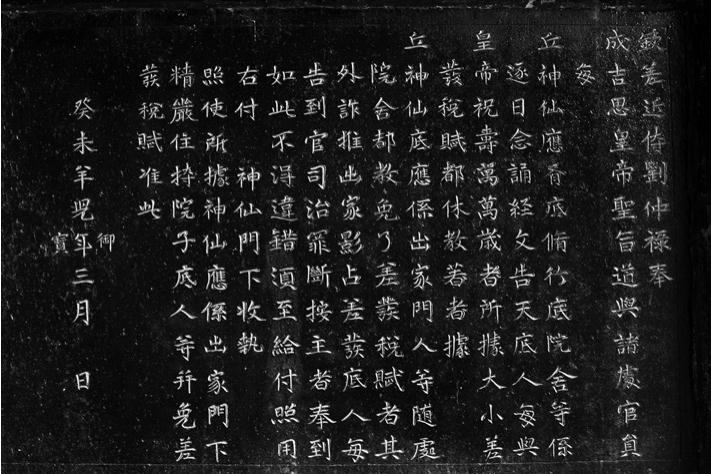 欽差近侍劉仲祿奉
成吉思皇帝聖旨道與諸處官員
每
丘神仙應有底脩行底院舍等係
逐日念誦経文告天底人每與
皇帝祝壽萬萬歲者所據大小差
發稅賦都休教着者據
丘神仙底應係出家門人等随處
院舍都教免了差發稅賦者其
外詐推出家影占差發底人每
告到官司治罪斷按主者奉到
如此不得違錯須至給付照用
右付 神仙門下收執
照使所據神仙應係出家門下
精嚴住持院子底人等幷免差
發稅賦准此
御寳
癸未羊兒年三月 日